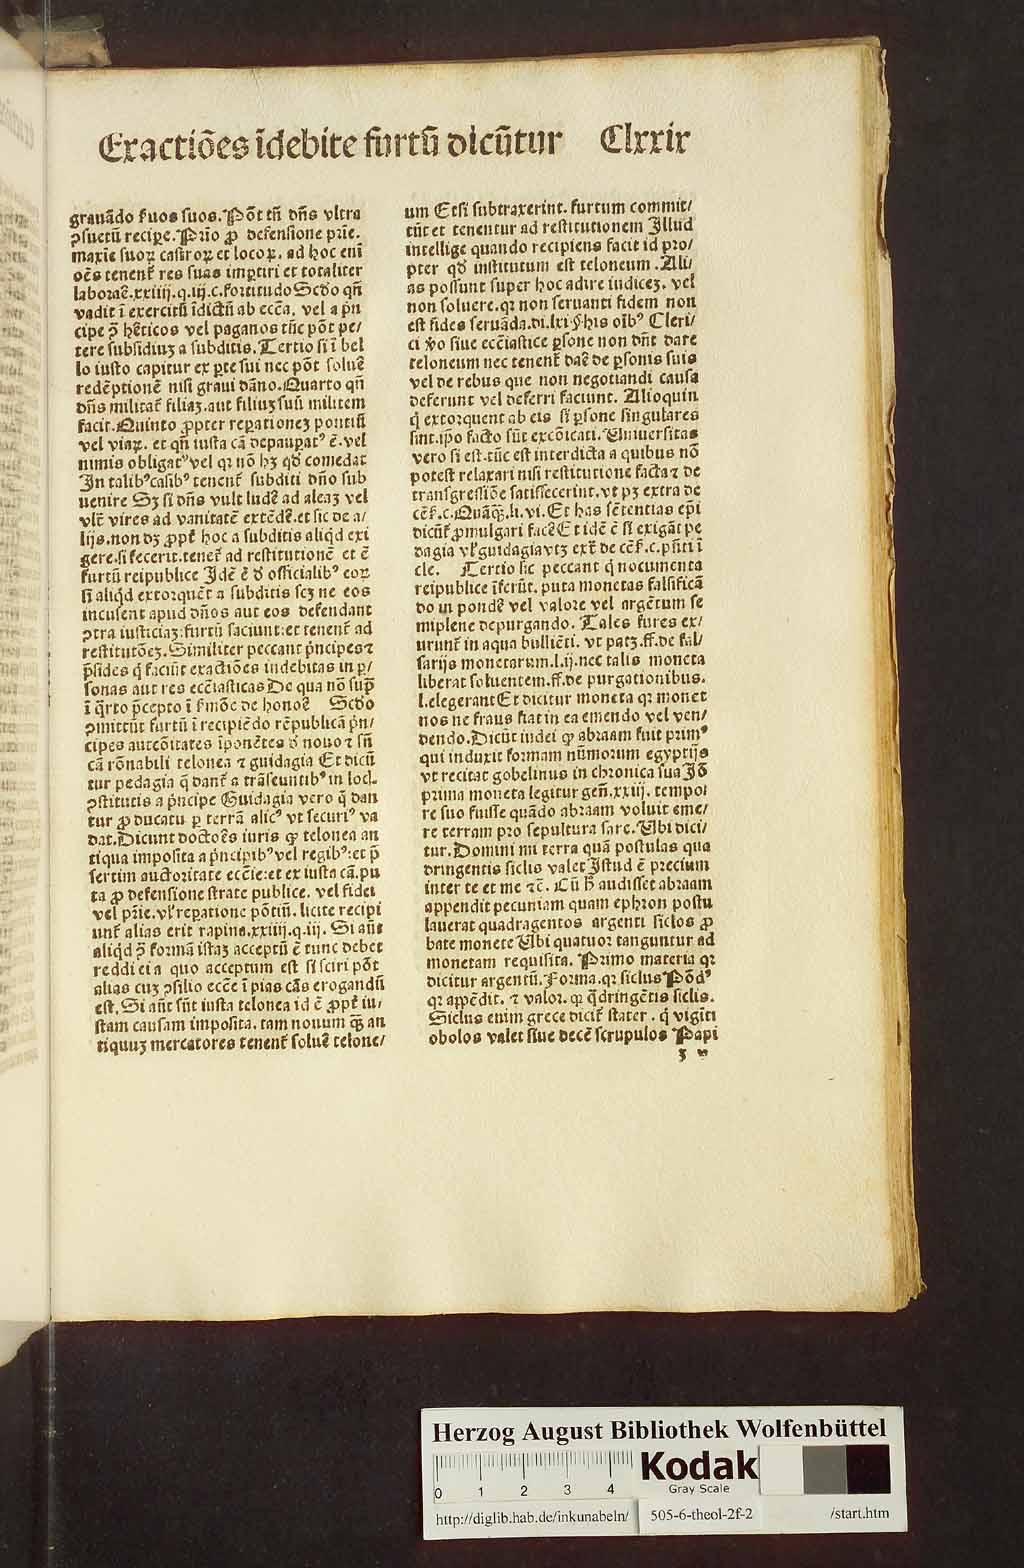 Exactiōes īdebite furtū dicūtur Clxxix
grauādo ẜuos suos. Pōt tn̄ dn̄s vltra
ꝯsuetū recipe. Prīo ꝓ defensione prīe.
maxīe suoꝝ castroꝝ et locoꝝ. ad hoc enī
oēs tenent̄ res suas imꝑtiri et totaliter
laborāe. xxiiij. q. iij. c. fortitudo Scd̄o qn̄
vadit ī exercitū īdictū ab ecc̄a. vel a p̄n
cipe ꝯ̄ hēticos vel paganos tūc pōt pe/
tere subsidiuꝫ a subditis. Tertio si ī bel
lo iusto capitur ex ꝑte sui nec pōt soluē
redēptionē nisi graui dāno. Quarto qn̄
dn̄s militat̄ filiaꝫ. aut filiuꝫ suū militem
facit. Quinto ꝓpter reꝑationeꝫ pontiū
vel viaꝝ. et qn̄ iusta cā depaupatꝰ ē. vel
nimis obligatꝰ vel qꝛ nō hꝫ qd̄ comedat
In talibꝰ casibꝰ tenent̄ subditi dn̄o sub
uenire Sꝫ si dn̄s vult ludē ad aleaꝫ vel
vlt̄ vires ad vanitatē extēdē. et sic de a/
lijs. non dꝫ ꝓpt̄ hoc a subditis aliqd̄ exi
gere. si fecerit. tenet̄ ad restitutionē et ē
furtū reipublice Idē ē d̄ officialibꝰ eoꝝ
si aliqd̄ extorquēt a subditis scꝫ ne eos
incusent apud dn̄os aut eos defendant
ꝯtra iusticiaꝫ: furtū faciunt: et tenent̄ ad
restitutōeꝫ. Similiter peccant p̄ncipes ⁊
p̄sides q̄ faciūt exactiōes indebitas in ꝑ/
sonas aut res ecc̄iasticas De qua nō sup̄
ī q̄rto p̄cepto ī ẜmōe de honoē Scd̄o
ꝯmittūt furtū ī recipiēdo rēpublicā p̄n/
cipes autcōitates īponētes d̄ nouo ⁊ sn̄
cā rōnabili telonea ⁊ guidagia Et dicū
tur pedagia q̄ dant̄ a trāseuntibꝰ in locꝭ
ꝯstitutis a p̄ncipe Guidagia vero q̄ dan
tur ꝓ ducatu ꝑ terrā alicꝰ vt securiꝰ va
dat. Dicunt doctōes iuris ꝙ telonea an
tiqua imposita a p̄ncipibꝰ vel regibꝰ: et p̄
sertim auctoritate ecc̄ie: et ex iusta cā. pu
ta ꝓ defensione strate publice. vel fidei
vel prīe. vl̓ reꝑatione pōtiū. licite recipi
unt̄ alias erit rapina. xxiiij. q. iij. Si aūt
aliqd̄ ꝯ̄ formā istaꝫ acceptū ē tunc debet
reddi ei a quo acceptum est si sciri pōt
alias cuꝫ ꝯsilio ecc̄e ī pias cās erogandū
est. Si aūt sūt iusta telonea id ē ꝓpt̄ iu/
stam causam imposita. tam nouum qꝫ̄ an
tiquuꝫ mercatores tenent̄ soluē telone/
um Etsi subtraxerint. furtum commit/
tūt et tenentur ad restitutionem Illud
intellige quando recipiens facit id pro/
pter qd̄ institutum est teloneum. Ali/
as possunt super hoc adire iudiceꝫ. vel
non soluere. qꝛ non seruanti fidem non
est fides seruāda. di. lxi § his oībꝰ Cleri/
ci v̓o siue ecc̄iastice ꝑsone non dn̄t dare
teloneum nec tenent̄ daē de ꝑsonis suis
vel de rebus que non negotiandi causa
deferunt vel deferri faciunt. Alioquin
q̄ extorquent ab eis si ꝑsone singulares
sint. ip̄o facto sūt excōicati. Uniuersitas
vero si est. tūc est interdicta a quibus nō
potest relaxari nisi restitutione facta ⁊ de
transgressiōe satisfecerint. vt pꝫ extra de
cēẜ. c. Quāqꝫ̄. li. vi. Et has sētentias ep̄i
dicūt̄ ꝓmulgari facē Et idē ē si exigāt pe
dagia vl̓ guidagia vtꝫ ext̄ de cēẜ. c. pn̄ti ī
cle. Tertio sic peccant q̄ nocumenta
reipublice īferūt. puta monetas falsificā
do in pondē vel valore vel argētum se
miplene depurgando. Tales fures ex/
urunt̄ in aqua bulliēti. vt patꝫ. ff. de fal/
sarijs monetarum. l. ij. nec talis moneta
liberat soluentem. ff. de purgationibus.
l. elegerant Et dicitur moneta qꝛ monet
nos ne fraus fiat in ea emendo vel ven/
dendo. Dicūt iudei ꝙ abraam fuit primꝰ
qui induxit formam nūmorum egyptijs
vt recitat gobelinus in chronica sua Iō
prima moneta legitur gen̄. xxiij. tempor
re suo fuisse quādo abraam voluit eme/
re terram pro sepultura sare. Ubi dici/
tur. Domini mi terra quā postulas qua
dringentis siclis valet Istud ē precium
inter te et me ⁊c̄. Cū h̄ audisset abraam
appendit pecuniam quam ephron postu
lauerat quadragentos argenti siclos ꝓ
bate monete Ubi quatuor tanguntur ad
monetam requisita. Primo materia qꝛ
dicitur argentū. Forma. qꝛ siclus Pōdꝰ
qꝛ appēdit. ⁊ valor. qꝛ q̄dringētis siclis.
Siclus enim grece dicit̄ stater. q̄ vigīti
obolos valet siue decē scrupulos Papi
ʒ v
Herzog August Bibliothek Wolfenbüttel
0 1 2 3 4
Kodak
Gray Scale
http://diglib.hab.de/inkunabeln/ 505-6-theol-2f-2 /start.htm